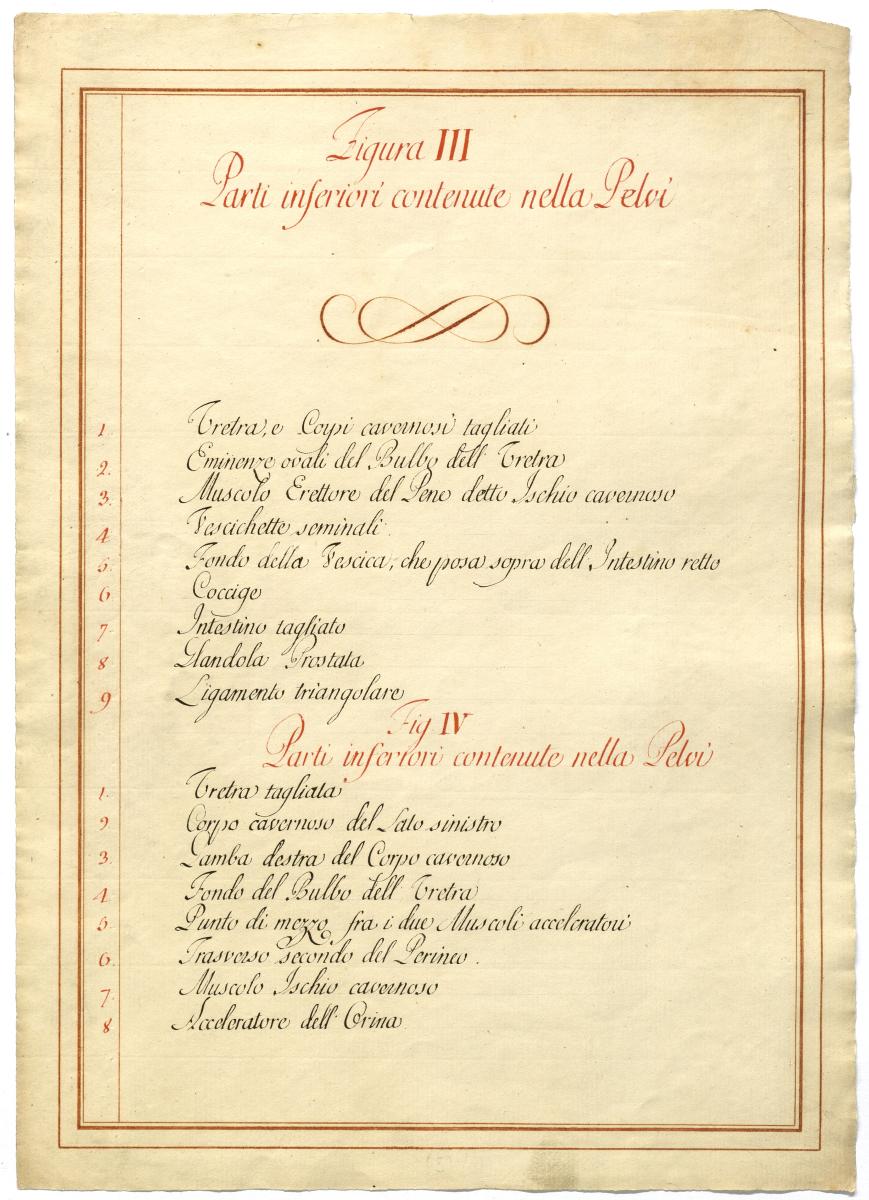 Figura III
Parti inferiori contenute nella Pelvi
1. Vretra, e Corpi cavernosi tagliati
2. Eminenze ovali del Bulbo dell' Vretra
3. Muscolo Erettore del Pene detto Ischio cavernoso
4 Vescichette seminali.
5. Fondo della Vescica, che posa sopra dell' Intestino retto
6 Coccige
7. Intestino tagliato
8 Glandola Prostata
9 Ligamento triangolare
Fig IV
Parti inferiori contenute nella Pelvi
1. Vretra tagliata
2 Corpo cavernoso del Lato sinistro
3. Gamba destra del Corpo cavernoso
4 Fondo del Bulbo dell' Vretra
5. Punto di mezzo fra i due Muscoli acceleratori
6. Trasverso secondo del Perineo.
7. Muscolo Ischio cavernoso
8 Acceleratore dell' Orina